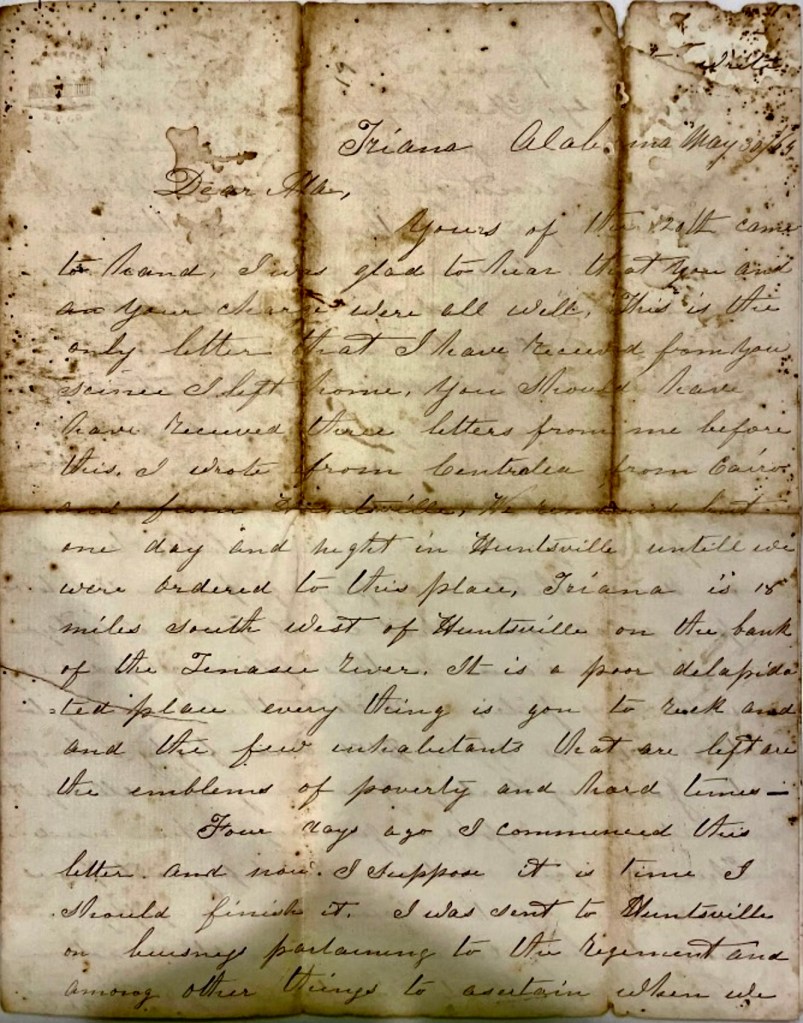 write
19
Triana Alabama May 30/65
Dear Ada,
Yours of the 20th came
to hand, I was glad to hear that you and
your charge were all well, This is the
only letter that I have received from you
scince I left home, You should have
have received three letters from me before
this. I wrote from Centralea from Cairo
and from Huntsville, We remained but
one day and night in Huntsville untill we
were ordered to this place, Triana is 18
miles south west of Huntsville on the bank
of the Tenasee river. It is a poor delapida
=ted place every thing is gon to reck and
and the few inhabetants that are left are
the emblems of poverty and hard times —
Four days ago I commenced this
letter and now I suppose it is time I
should finish it. I was sent to Huntsville
on buisness partaining to the regement and
among other things to asertain when we